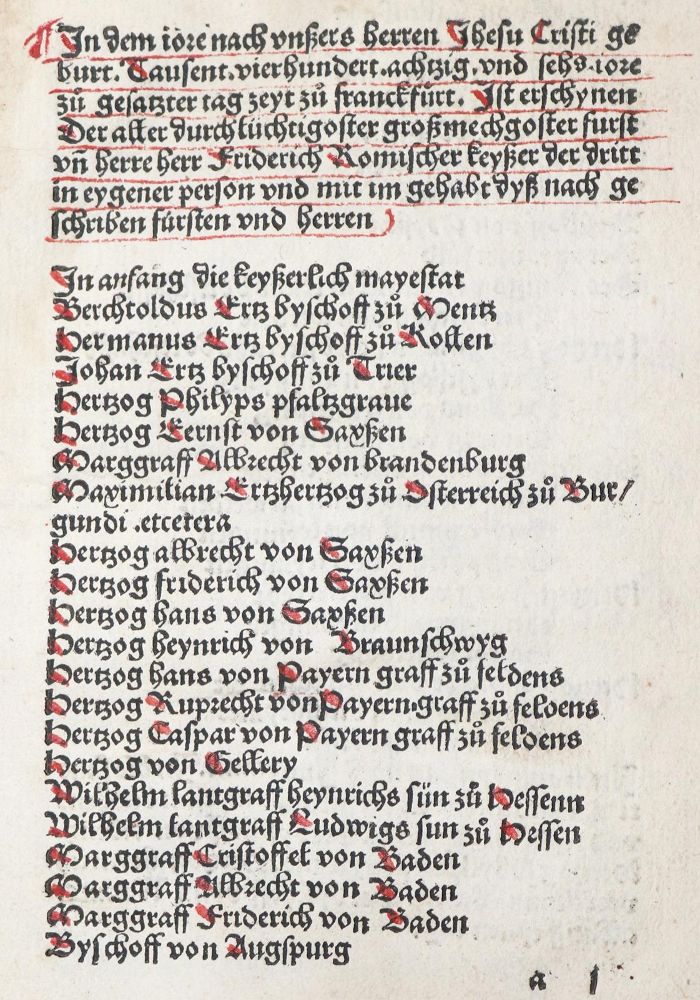 ¶ In dem iore nach vnßers herren Jhesu Cristi ge
burt. Tausent.vierhundert.achtzig.vnd sehs.iore
zů gesatzter tag zeyt zů franckfürt. Ist erschynen
Der aller durchlüchtigoster großmechgoster furst
vñ herre herr Friderich Römischer keyßer der dritt
in eygener person vnd mit im gehabt dyß nach ge
schriben fürsten vnd herren
In anfang die keyßerlich mayestat
Berchtoldus Ertz byschoff zů Mentz
Hermanus Ertz byschoff zů Kollen
Johan Ertz byschoff zů Trier
Hertzog Philyps pfaltzgraue
Hertzog Eernst von Saxßen
Marggraff Albrecht von brandenburg
Maximilian Ertzhertzog zů Osterreich zů Bur/
gundi .etcetera
Hertzog albrecht von Saxßen
Hertzog friderich von Saxßen
Hertzog hans von Saxßen
Hertzog heynrich von Braunschwyg
Hertzog hans von Payern graff zů feldens
Hertzog Ruprecht von Payern.graff zů feldens
Hertzog Caspar von Payern graff zů feldens
Hertzog von Gellery
Wilhelm lantgraff heynrichs sün zů Hessenn
Wilhelm lantgraff Ludwigs sun zů Hessen
Marggraff Cristoffel von Baden
Marggraff Albrecht von Baden
Marggraff Friderich von Baden
Byschoff von Augspurg
a j